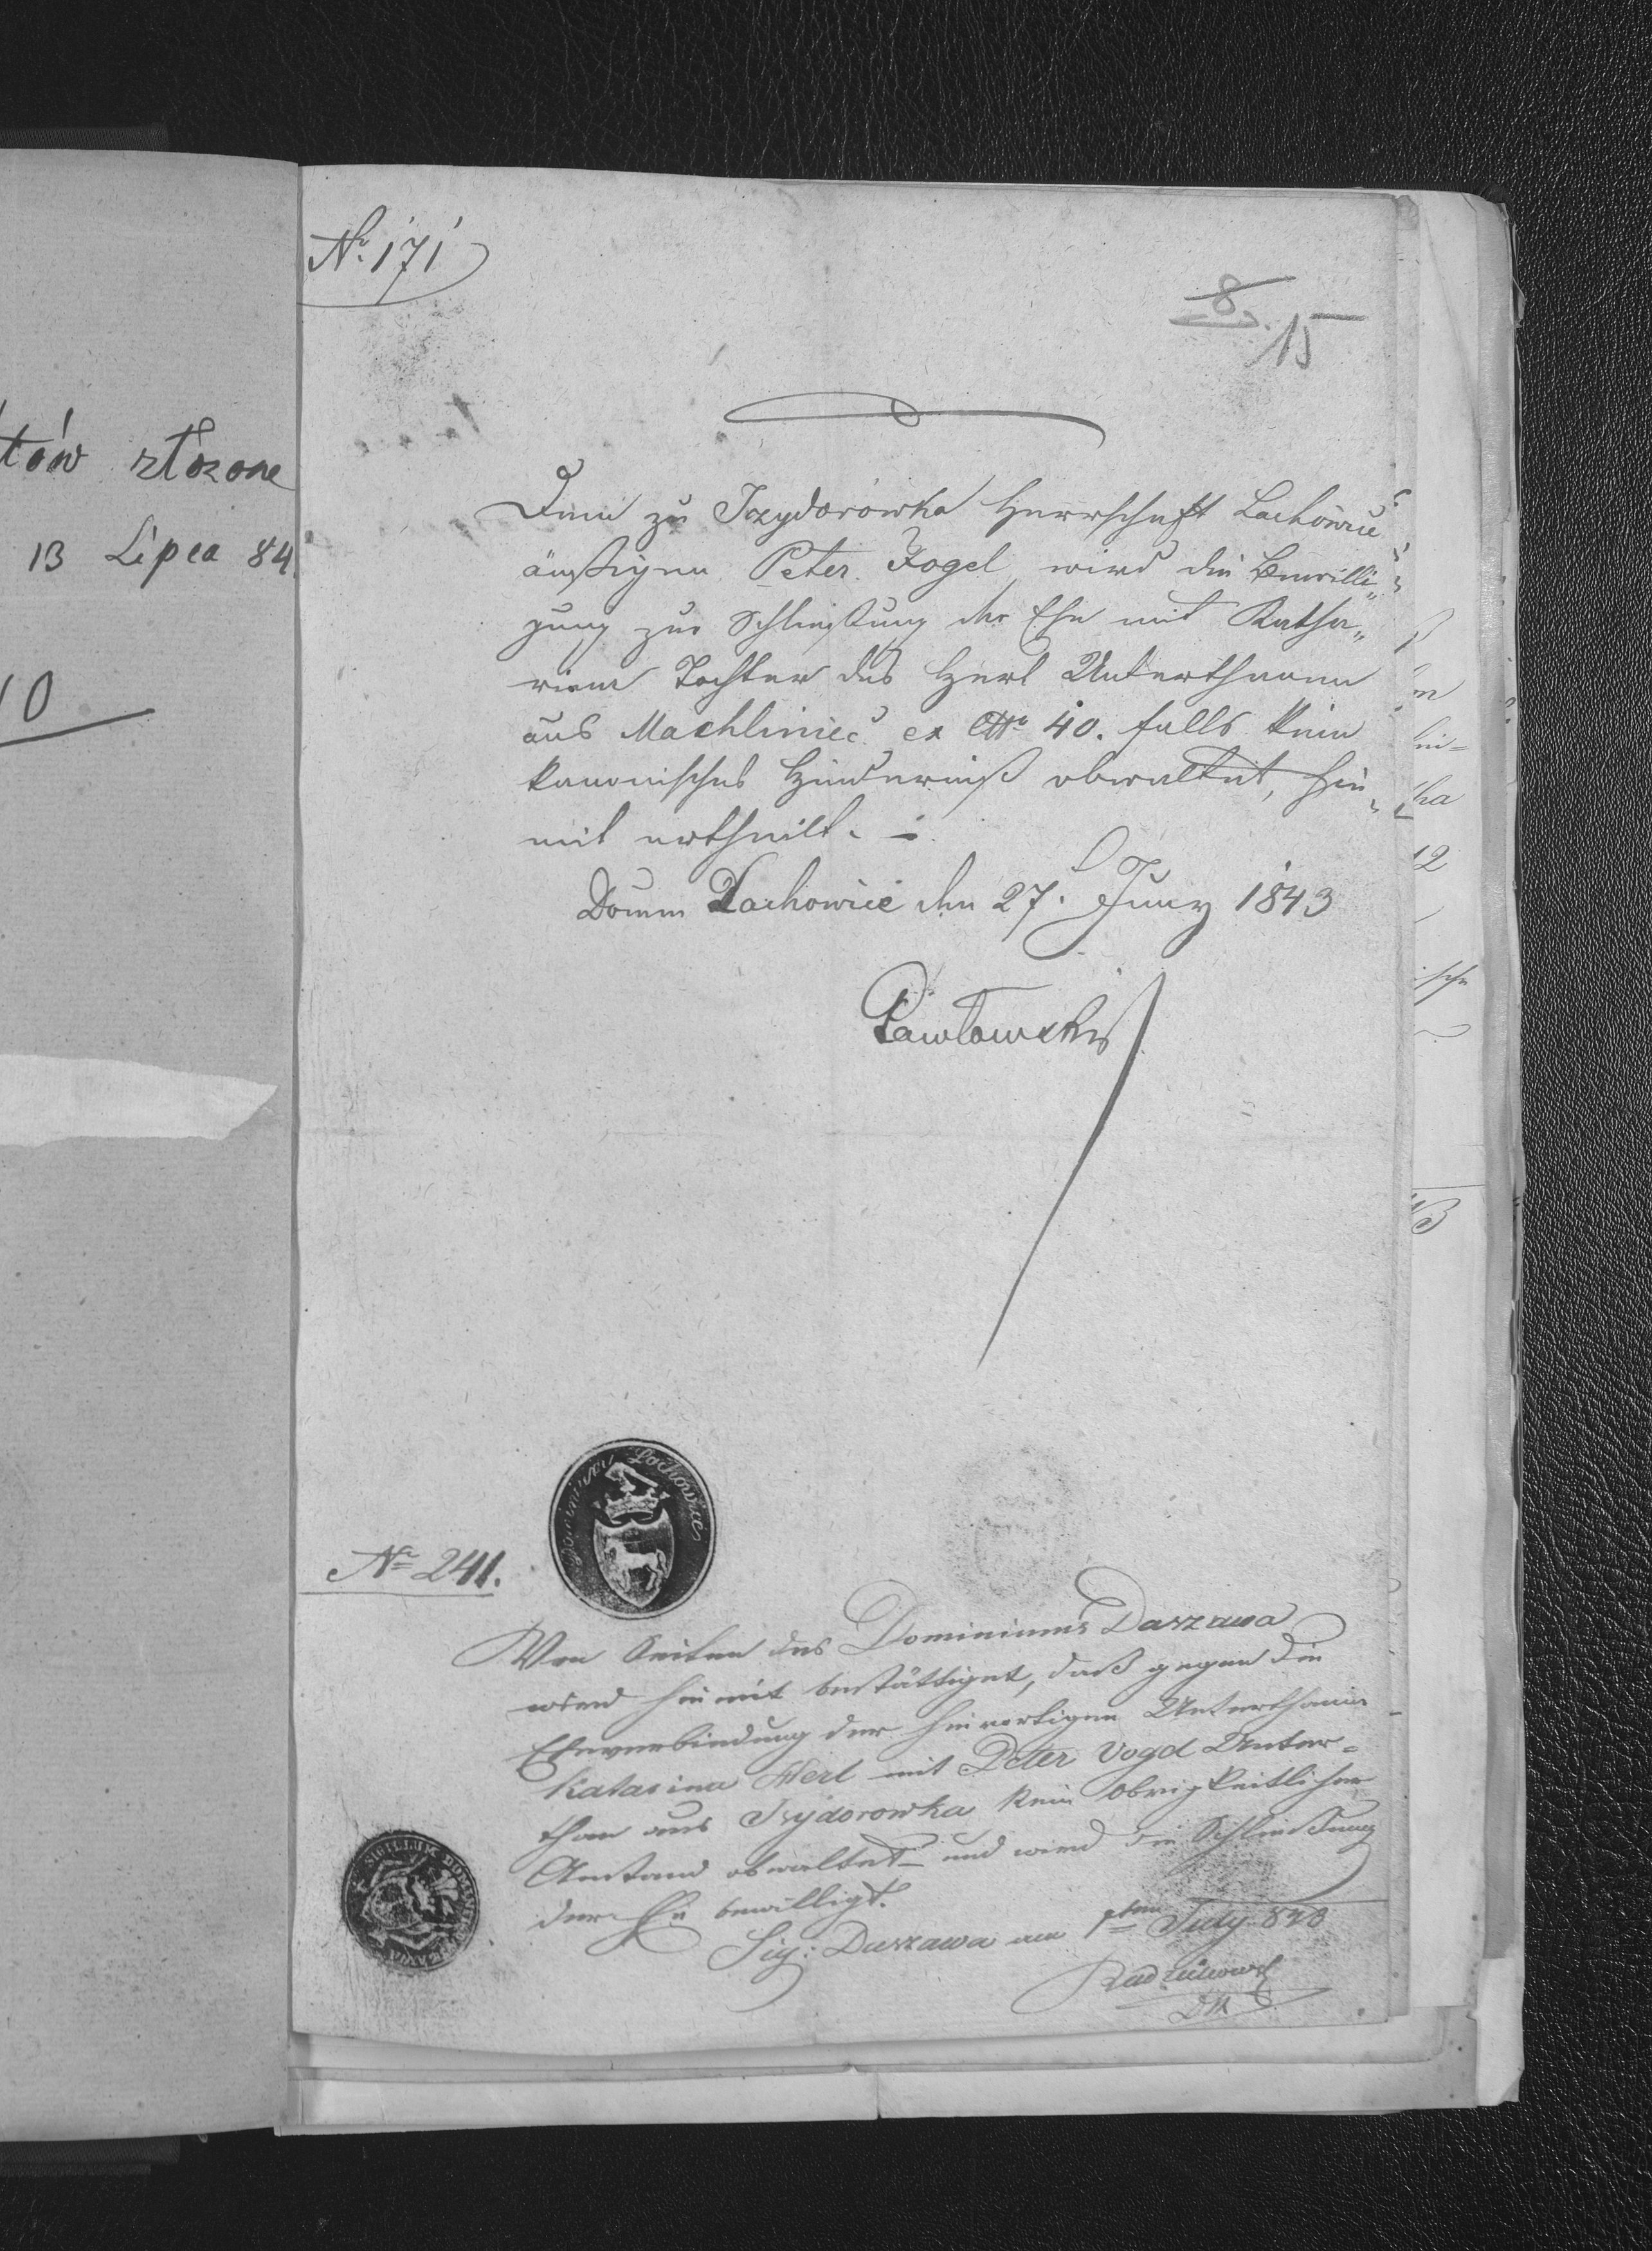 tów złozone
13 Lipca 84
10
Nr. 171
8
15
Dem zu Izydorowka Herrschaft Lachowice
äußigen Peter Fogel wird die Bewilli„
gung zur Schließung der Ehe mit Katha„
rina Tochter des Herl Unterthanen
aus Machliniec ex CNr 40. falls kein
kanonisches Hinderniß obwaltet, hie„
mit ertheilt.
Domm Lachowice den 27. Juny 1843
Pawłowski
Dominium Lachowice
Nr 241.
Von Seiten des Dominiums Daszawa
wird hiemit bestättiget, daß gegen die
Eheverbindung der hierortigen Unterthanin
Katarina Herl mit Peter Vogel Unter=
than aus Izydorowka kein obrigkeitlicher
Anstand obwaltet und wird die Schließung
der Ehe bewilligt.
Sig: Daszawa am 1ten July 843
SIGILLUM DOMINII